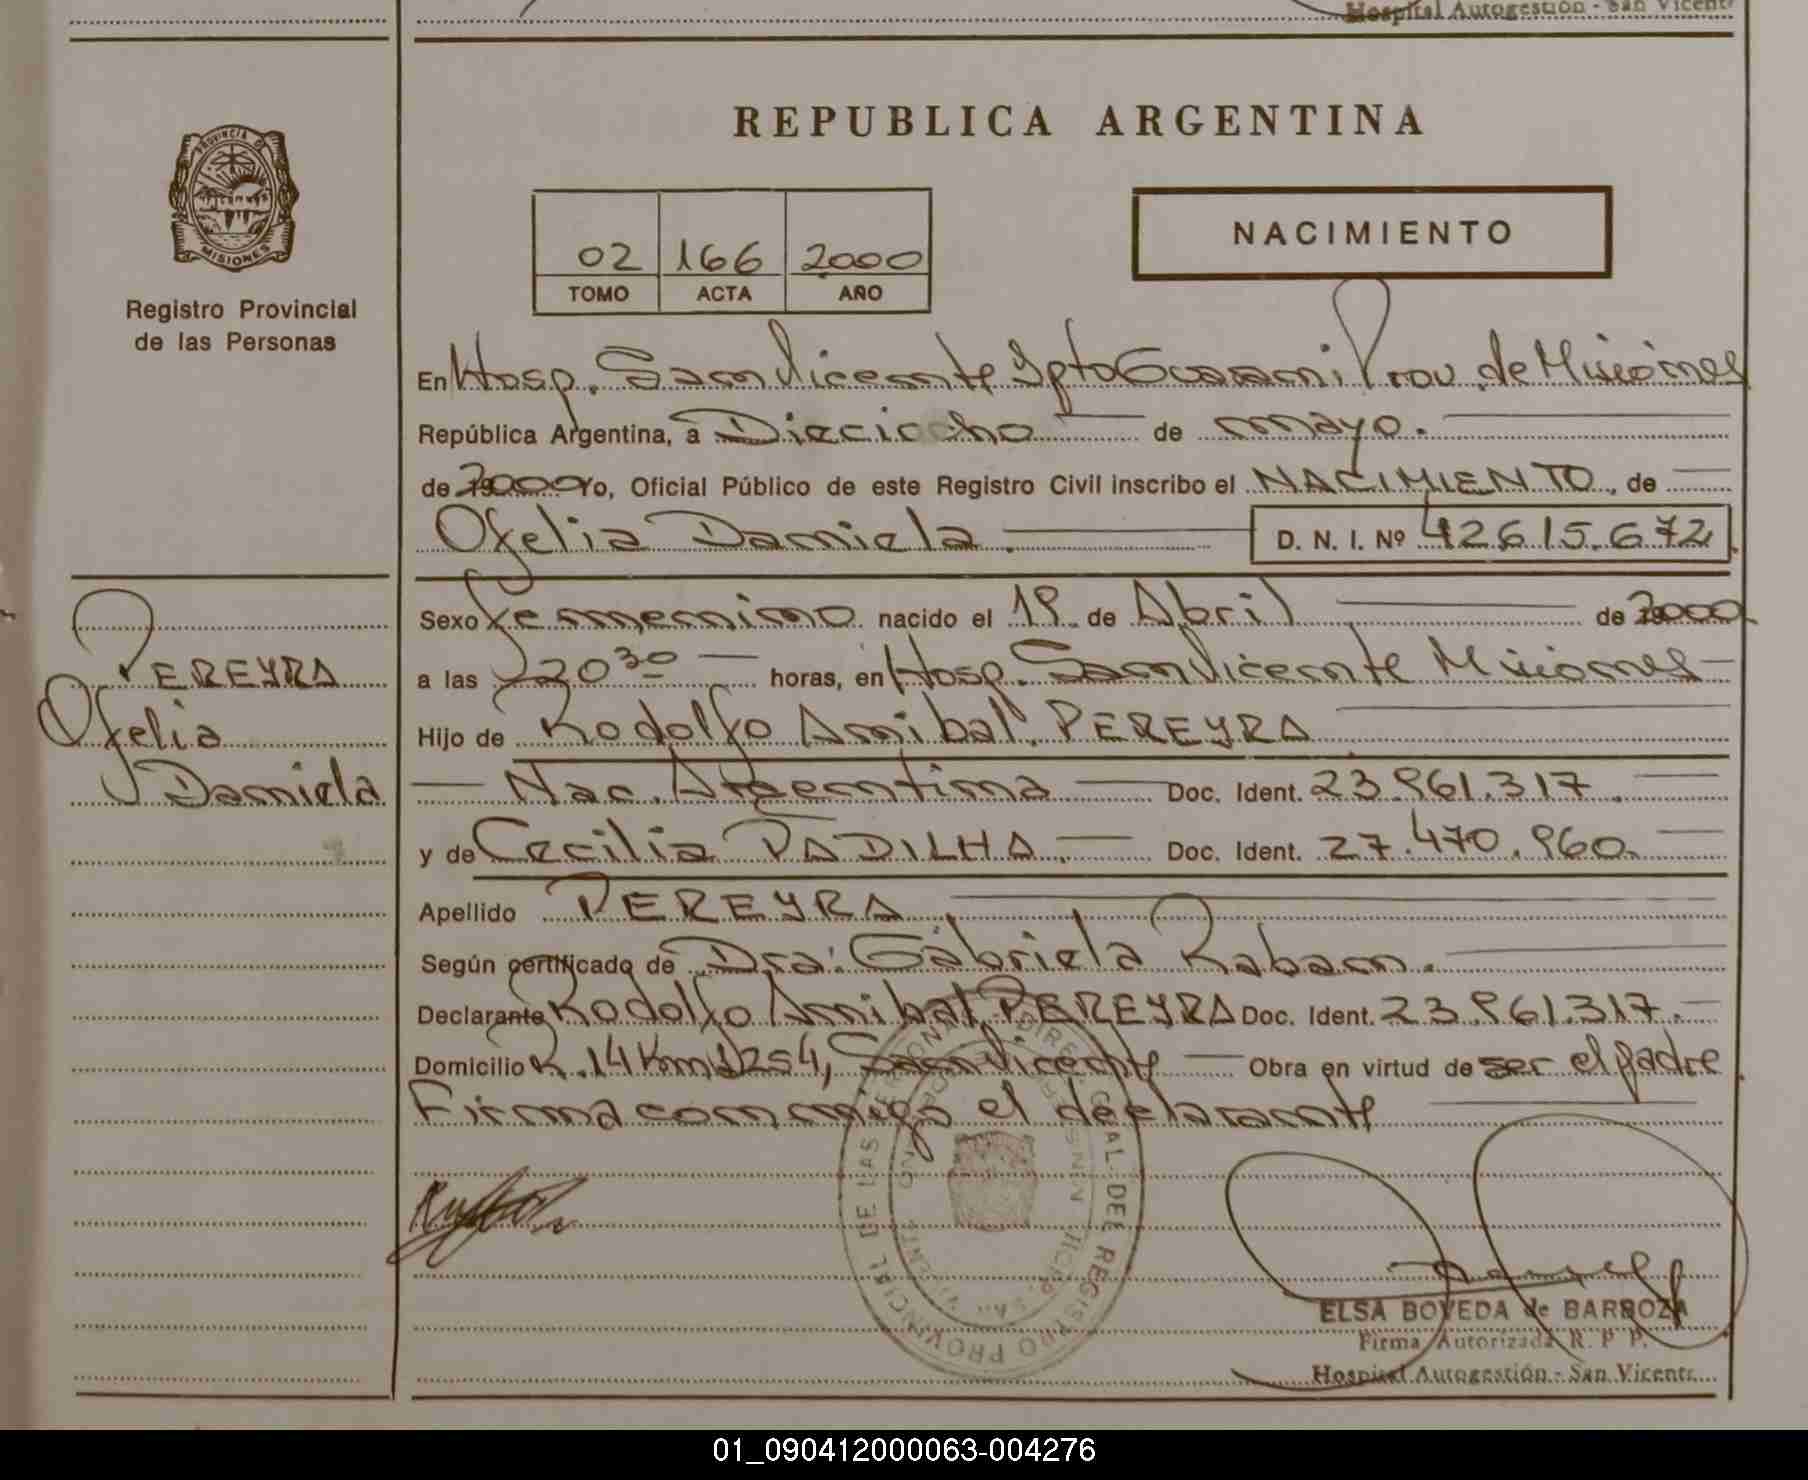 Hospital Autogestión - San Vicente
PROVINCIA D
MISIONES
Registro Provincial
de las Personas
REPUBLICA ARGENTINA
02 166 2000
TOMO ACTA AÑO
NACIMIENTO
En Hosp. San Vicente Dpto Guarani Prov. de Misiones
República Argentina, a Dieciocho de mayo.
de 2000 Yo, Oficial Público de este Registro Civil inscribo el NACIMIENTO, de
Ofelia Daniela. D. N. I. Nº 42.615.672
PEREYRA
Ofelia
Daniela
Sexo femenino nacido el 19 de Abril de 2000
a las 20 30 horas, en Hosp. San Vicente Misiones
Hijo de Rodolfo Anibal PEREYRA
Nac. Argentina Doc. Ident. 23.961.317
y de Cecilia PADILHA. Doc. Ident. 27.470.960
Apellido PEREYRA
Según certificado de Dra. Gabriela Raban.
Declarante Rodolfo Anibal PEREYRA Doc. Ident. 23.961.317.
Domicilio R. 14 Km 1254, San Vicente Obra en virtud de ser el padre
Firma conmigo el declarante
DIREC. GRAL. DEL REGISTRO PROVINCIAL DE LAS PERSONAS
ELSA BOVEDA de BARBOZA
Firma Autorizada R. P P.
Hospital Autogestión - San Vicente
01_090412000063-004276